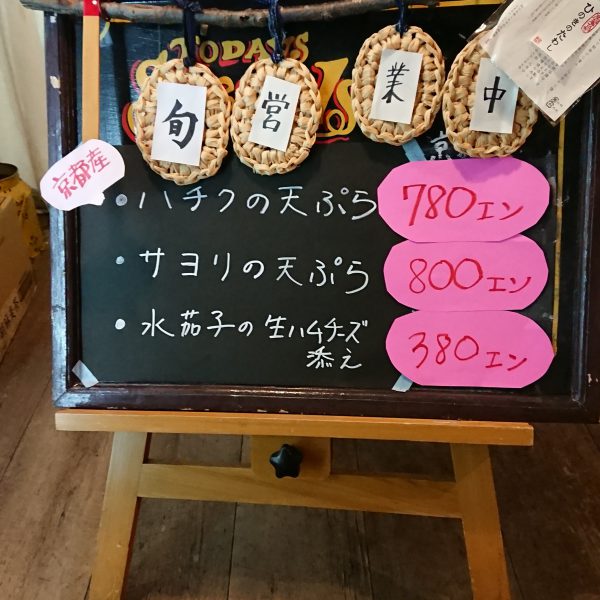 TODAYS
旬 営 業 中
ひのきのたわし
京都産
京
・ハチクの天ぷら 780エン
・サヨリの天ぷら 800エン
・水茄子の生ハムチーズ
添え 380エン